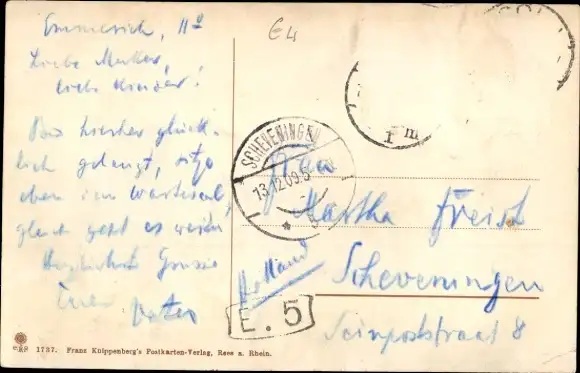 Emmerich, 11ᵈ
Liebe Mutter,
liebe Kinder!
Bin hierher glück-
lich gelangt, sitze
eben im Wartesaal,
gleich geht es weiter.
Herzlichste Grüsse
Euer Vater
E4
SCHEVENINGEN
13.12.09.5
m
Frau
Martha Freist
Scheveningen
Seinpoststraat 8
Holland
E. 5
1737. Franz Knippenberg's Postkarten-Verlag, Rees a. Rhein.